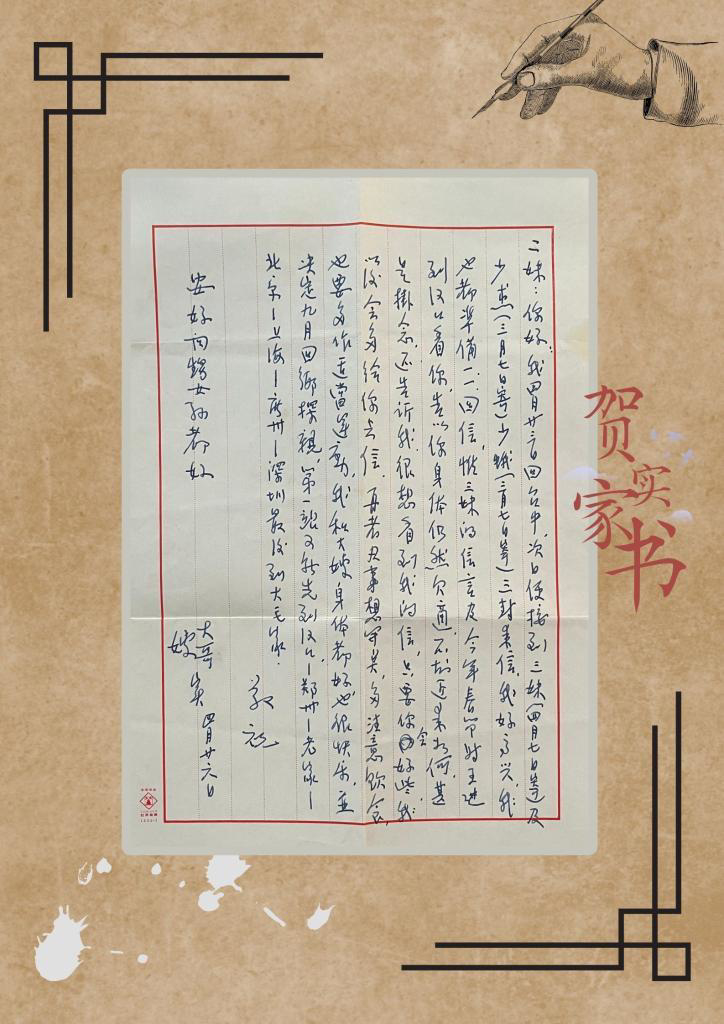 二妹：你好，我四月廿三日回台中，次日便接到三妹（四月七日寄）及
少杰（三月七日寄）少娥（三月七日寄）三封来信，我好高兴，我
也都準備一一回信，惟三妹的信言及今年春节时王进
到汉口看你，告以你身体仍然欠適，不知近来如何，甚
是掛念，还告訴我，很想看到我的信，只要你会好些，我
以後会多给你去信，再者凡事想開点，多注意飲食，
也要多作適當運動，我和大嫂身体都好也很快乐，並
决定九月回鄉探親，第一站可能先到汉口—郑州—老家—
北京—上海—廣州—深圳最後到大毛家，
敬祝
安好 問甥女孙都好
大哥 实
嫂
四月廿六日
贺
实
家
书